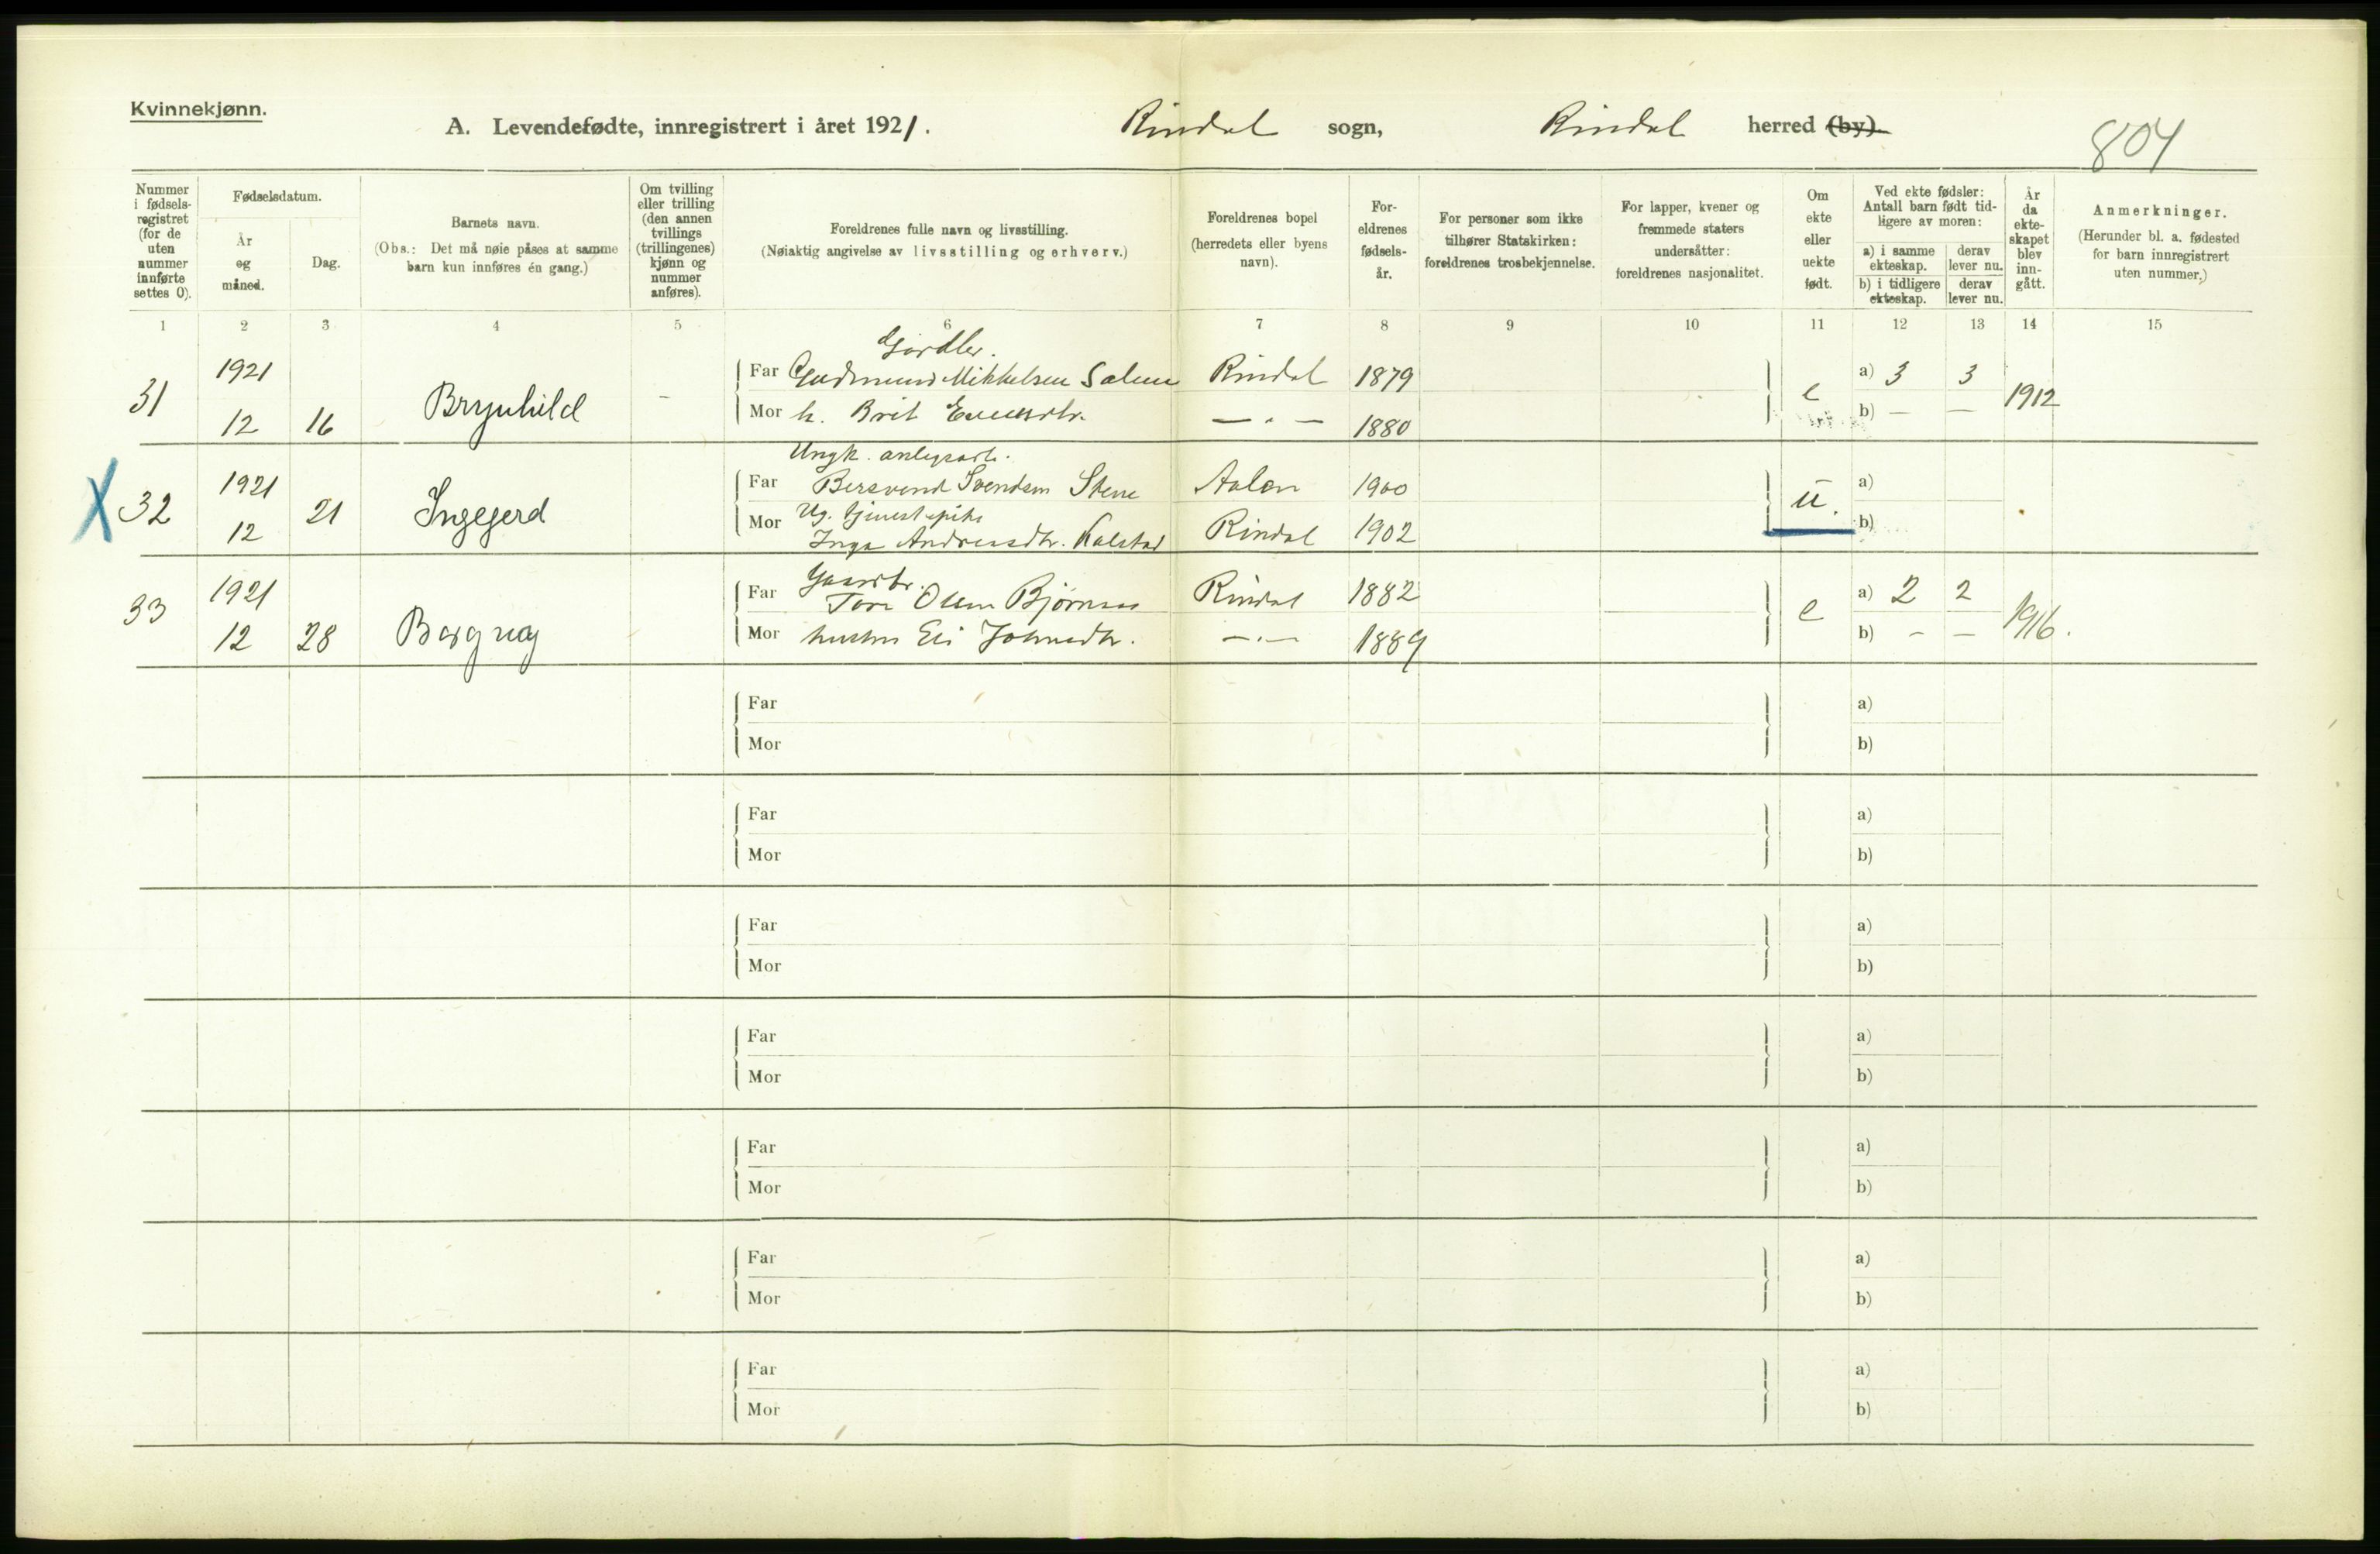 Kvinnekjønn.
A. Levendefødte, innregistrert i året 1921.
Rindal sogn,
Rindal herred (by).
804
Nummer i fødsels-registret (for de uten nummer innførte settes 0).
Fødselsdatum.
År og måned.
Dag.
Barnets navn.
(Obs.: Det må nøie påses at samme barn kun innføres én gang.)
Om tvilling eller trilling (den annen tvillings (trillingenes) kjønn og nummer anføres).
Foreldrenes fulle navn og livsstilling.
(Nøiaktig angivelse av livsstilling og erhverv.)
Foreldrenes bopel (herredets eller byens navn).
For-eldrenes fødsels-år.
For personer som ikke tilhører Statskirken: foreldrenes trosbekjennelse.
For lapper, kvener og fremmede staters undersåtter: foreldrenes nasjonalitet.
Om ekte eller uekte født.
Ved ekte fødsler: Antall barn født tid-ligere av moren:
a) i samme ekteskap.
derav lever nu.
b) i tidligere ekteskap.
derav lever nu.
År da ekte-skapet blev inn-gått.
Anmerkninger.
(Herunder bl. a. fødested for barn innregistrert uten nummer.)
1 2 3 4 5 6 7 8 9 10 11 12 13 14 15
31 1921 12 16 Brynhild -
Far Gudmund Mikkelsen Rindal 1879
Mor h. Brit — " — 1880
e a) 3 3 b) — — 1912
X 32 1921 12 21 Ingegerd
Ungk.
Far Bersvend Svendsen Stene Aalen 1900
Ug. tjenestepike
Mor Inga Andreasdtr. Kalstad Rindal 1902
u. a) b)
33 1921 12 28 Borgny
Gaardbr.
Far Tore Olsen Rindal 1882
Mor hustru Eli — " — 1889
e a) 2 2 b) - - 1916.
Far a)
Mor b)
Far a)
Mor b)
Far a)
Mor b)
Far a)
Mor b)
Far a)
Mor b)
Far a)
Mor b)
Far a)
Mor b)